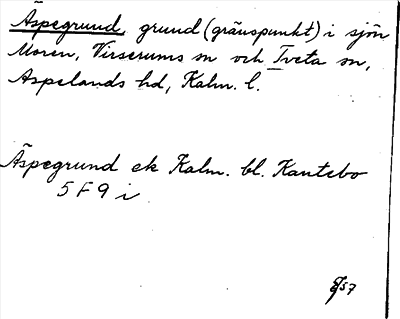 Äspegrund, grund (gränspunkt) i sjön
Moren, Virserums sn och Tveta sn,
Aspelands hd, Kalm. l.
Äspegrund ek Kalm. bl. Kantebo
5 F 9 i
57